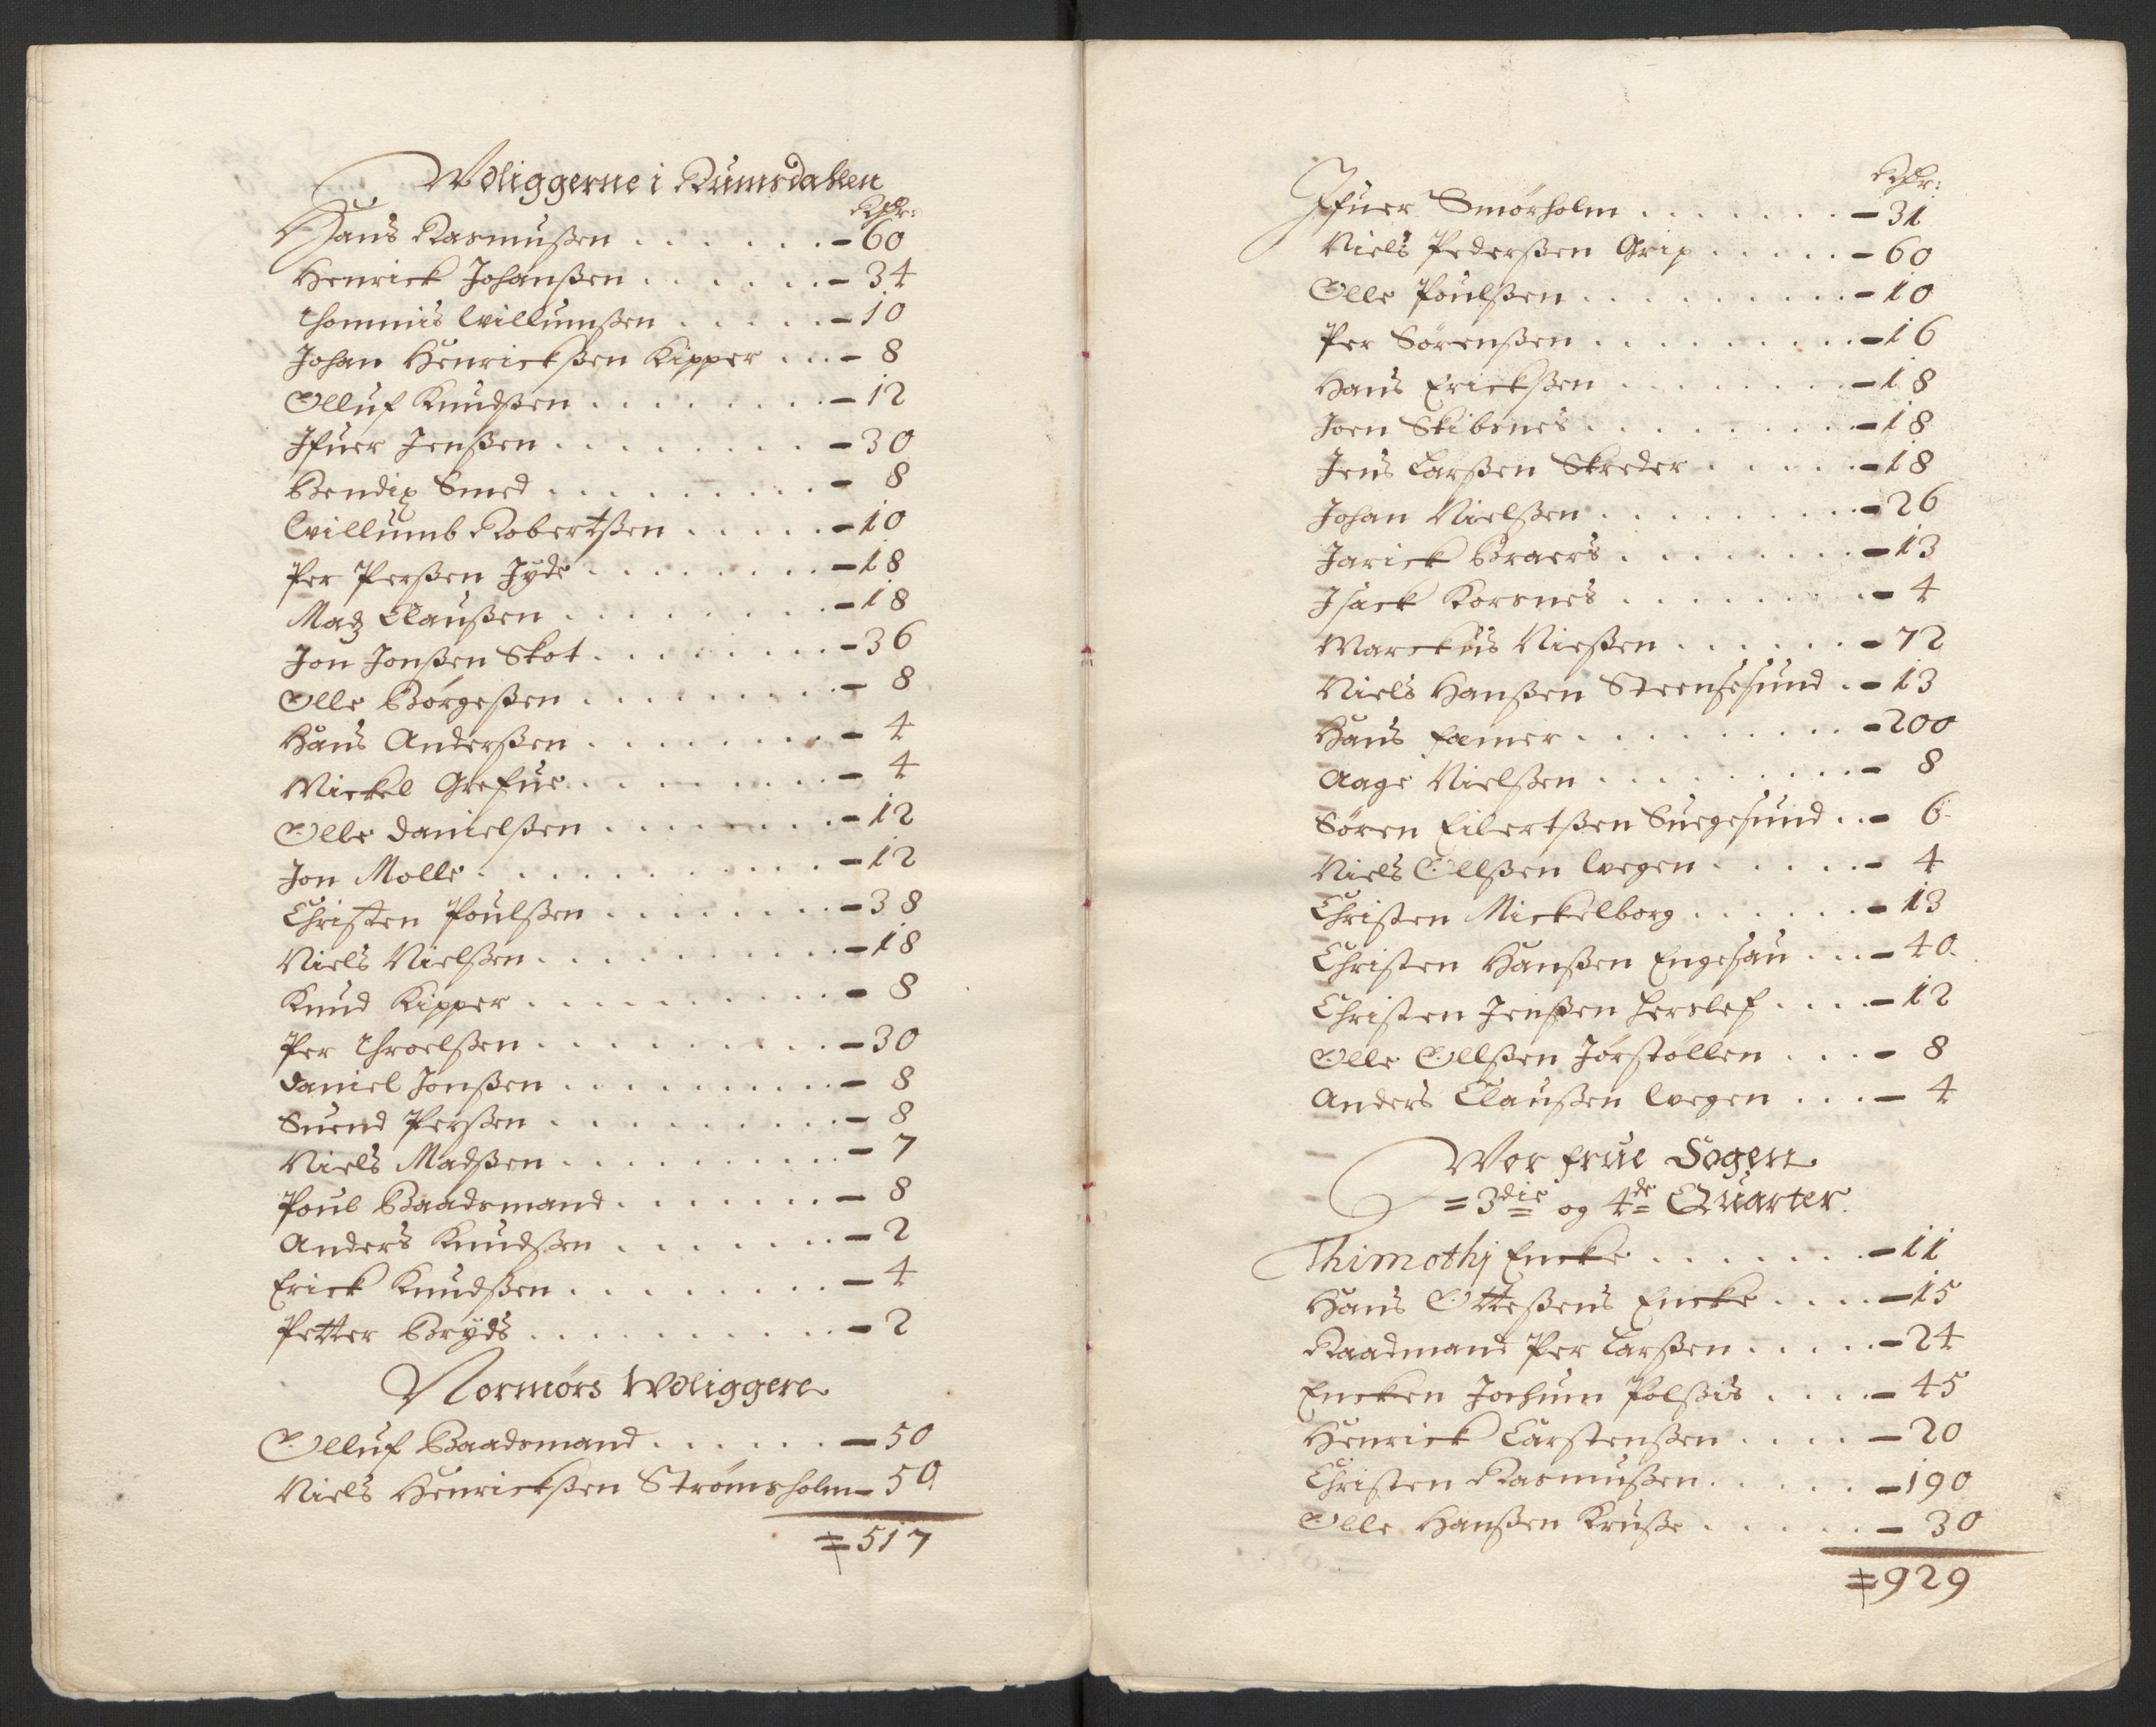 Wdliggerne i Rumsdahlen
Rdr:
Hans Rasmußen . . . . . . - 60
Henrick Johanßen . . . . . . - 34
Thommis Willumßen . . . . . - 10
Johan Henrickßen Kipper . . . - 8
Olluf Knudßen . . . . . . . . - 12
Ifuer Jenßen . . . . . . . . - 30
Bendix Smed . . . . . . . . . - 8
Willumb Robertßen . . . . . - 10
Per Perßen Jyde . . . . . . . . - 18
Madz Claußen . . . . . . . . - 18
Jon Jonßen Skot . . . . . . . . - 36
Olle Börgeßen . . . . . . . . - 8
Hans Anderßen . . . . . . . . - 4
Mickel Grefue . . . . . . . . - 4
Olle Danielßen . . . . . . . . - 12
Jon Molle . . . . . . . . . . - 12
Christen Poulßen . . . . . . . - 38
Niels Nielßen . . . . . . . . . - 18
Knud Kipper . . . . . . . . . - 8
Per Throelßen . . . . . . . . . - 30
Daniel Jonßen . . . . . . . . . - 8
Suend Perßen . . . . . . . . . - 8
Niels Madßen . . . . . . . . . - 7
Poul Baadsmand . . . . . . . - 8
Anders Knudßen . . . . . . . - 2
Erick Knudßen . . . . . . . . - 4
Petter Bryds . . . . . . . . . . - 2
Normørs Wdliggere
Olluf Baadsmand . . . . . . - 50
Niels Henrickßen Strømsholm - 50
= 517
Rdr:
Ifuer Smørholm . . . . . . . - 31
Niels Pederßen Grip . . . . . - 60
Olle Poulßen . . . . . . . . . - 10
Per Sørenßen . . . . . . . . . - 16
Hans Erickßen . . . . . . . . - 18
Joen Skibsnes . . . . . . . . . - 18
Jens Larßen Skreder . . . . . - 18
Johan Nielßen . . . . . . . . . - 26
Jarick Braers . . . . . . . . - 13
Isack Korsnes . . . . . . . . - 4
Marckus Nießen . . . . . . - 72
Niels Hanßen Steensesund . - 13
Hans Famer . . . . . . . . . - 200
Aage Nielßen . . . . . . . . . - 8
Sören Eilertßen Suegesund . . - 6
Niels Ollßen Wegen . . . . . - 4
Christen Mickelborg . . . . . . - 13
Christen Hanßen Engesau . . . - 40
Christen Jenßen Herslef . . . . - 12
Olle Ollßen Jörstöllen . . . - 8
Anders Claußen Wegen . . . - 4
Wor Frue Sogen
= 3die og 4de Quarter
Thimothj Encke . . . . . . . - 11
Hans Otteßens Encke . . . . - 15
Raadmand Per Larßen . . . . . - 24
Encken Jochum Polßis . . . . - 45
Henrick Carstenßen . . . . - 20
Christen Rasmußen . . . . . - 190
Olle Hanßen Kruße . . . . . - 30
= 929